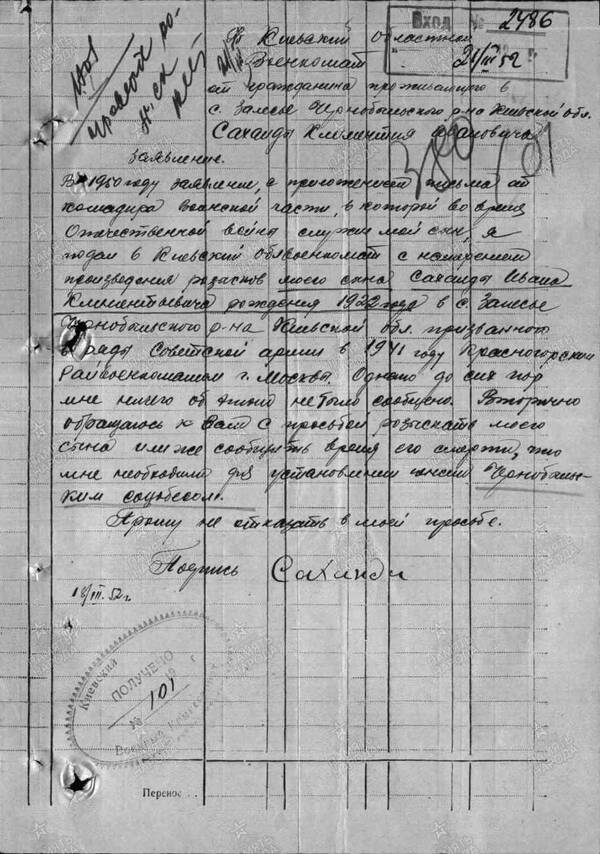 Вход № 2486
21/III 52
В Киевский областной
Военкомат
от гражданина проживающего в
с. Залесье Чернобыльского р-на Киевской обл.
Саханды Климентия Ивановича
Заявление.
В 1950 году заявление, с приложением письма от
командира воинской части, в которой во время
Отечественной войны служил мой сын, я
подал в Киевский облвоенкомат с намерением
произведения розысков моего сына Саханды Ивана
Климентьевича рождения 1922 года в с. Залесье
Чернобыльского р-на Киевской обл. призванного
в ряды Советской армии в 1941 году Красногорским
Райвоенкоматом г. Москва. Однако до сих пор
мне ничего об этом не было сообщено. Вторично
обращаюсь к Вам с просьбой розыскать моего
сына или же сообщить время его смерти, что
мне необходимо для установления пенсии Чернобыль-
ским соцобесом.
Прошу не отказать в моей просьбе.
Подпись Саханди
18/III. 52 г.
Киевский
ПОЛУЧЕНО
№ 101
Перенос